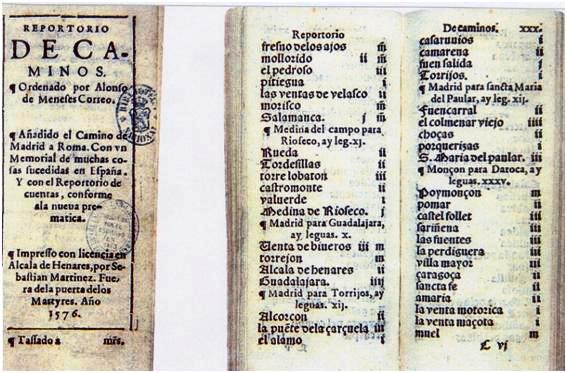 REPORTORIO
DE CA-
MINOS.
¶ Ordenado por Alonso
de Meneses Correo.
¶ Añadido el Camino de
Madrid a Roma. Con vn
Memorial de muchas co
sas sucedidas en España.
Y con el Reportorio de
cuentas, conforme
ala nueua pre-
matica.
¶ Impresso con licencia en
Alcala de Henares, por Se-
bastian Martinez. Fue
ra dela puerta delos
Martyres. Año
1576.
¶ Tassado a mrs.
Reportorio
fresno delos ajos m
mollorido ii m
el pedroso iii
pitiegua i
las ventas de velasco ii
morisco m
Salamanca. j m
¶ Medina del campo para
Rioseco, ay leg. xj.
Rueda ii
Tordesillas ii
torre lobaton iii
castromonte ii
valuerde i
Medina de Rioseco. j
¶ Madrid para Guadalajara,
ay leguas. x.
Uenta de biueros iii m
torrejon m
Alcala de henares ii
Guadalajara. iiij
¶ Madrid para Torrijos, ay
leguas. xij.
Alcorcon ii
la puẽte dela çarçuela m
el alamo i
De caminos. xxx.
casarruuios i
camarena ii
fuen salida j
Torrijos. i
¶ Madrid para sancta Maria
del Paular, ay leg. xij.
Fuencarral ii
el colmenar viejo iiii
choças ii
porquerisas i
S. Maria del paular. iii
¶ Monçon para Daroca, ay
leguas. xxxv.
Poymonçon m
pomar ii
castel follet iii
sariñena iii
las fuentes iii
la perdiguera iiii
villa mayor iii
çaragoça ii
sancta fe ii
amaria ii
la venta motorica i
la venta maçota i
muel m
C vj